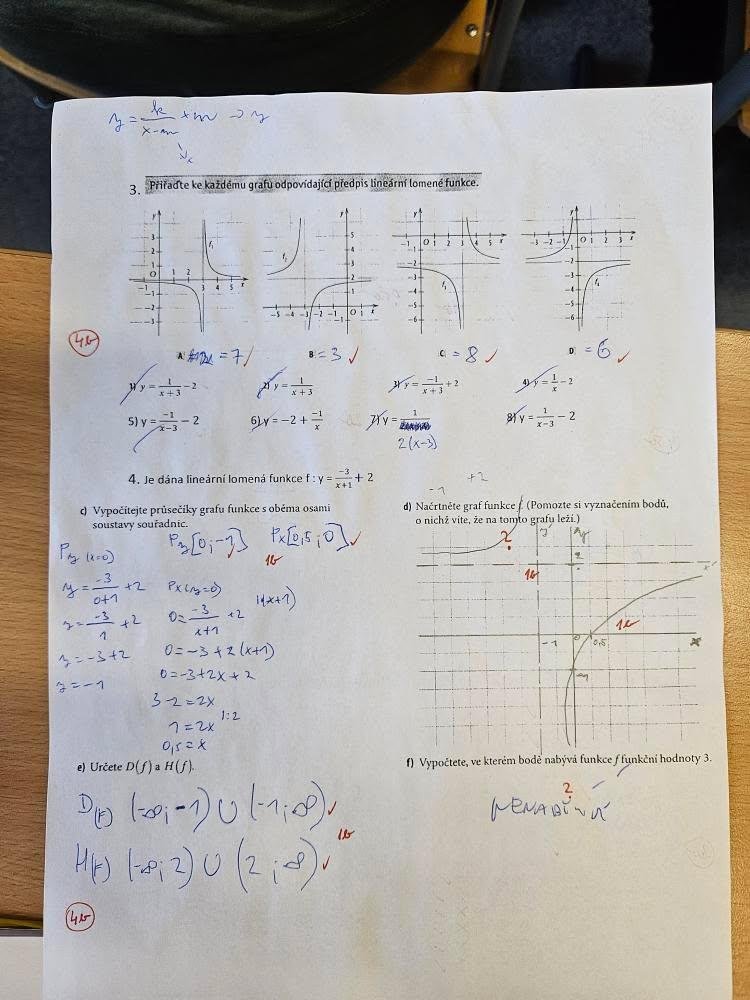 y = k/(x-m) + n → y
↘x
3. Přiřaďte ke každému grafu odpovídající předpis lineární lomené funkce.
4b
A = 7 B = 3 ✓ C = 8 ✓ D = 6 ✓
1) y = 1/(x+3) - 2 2) y = 1/(x+3) 3) y = -1/(x+3) + 2 4) y = 1/x - 2
5) y = -1/(x-3) - 2 6) y = -2 + -1/x 7) y = 1/ 8) y = 1/(x-3) - 2
2(x-3)
4. Je dána lineární lomená funkce f : y = -3/(x+1) + 2
-1 +2
c) Vypočítejte průsečíky grafu funkce s oběma osami
soustavy souřadnic.
Py (x=0) Py[0;-1] Px[0,5;0] ✓
1b
y = -3/(0+1) + 2 Px (y=0)
y = -3/1 + 2 0 = -3/(x+1) + 2 |·(x+1)
y = -3+2 0 = -3+2(x+1)
y = -1 0 = -3+2x+2
3-2 = 2x
1 = 2x |:2
0,5 = x
d) Načrtněte graf funkce f. (Pomozte si vyznačením bodů,
o nichž víte, že na tomto grafu leží.)
? y' y
1b 2 x'
1b
-1 0 0,5 x
-1
e) Určete D(f) a H(f).
D(f) (-∞;-1) ∪ (-1;∞) ✓
1b
H(f) (-∞;2) ∪ (2;∞) ✓
4b
f) Vypočtete, ve kterém bodě nabývá funkce f funkční hodnoty 3.
?
NENABÍVÁ